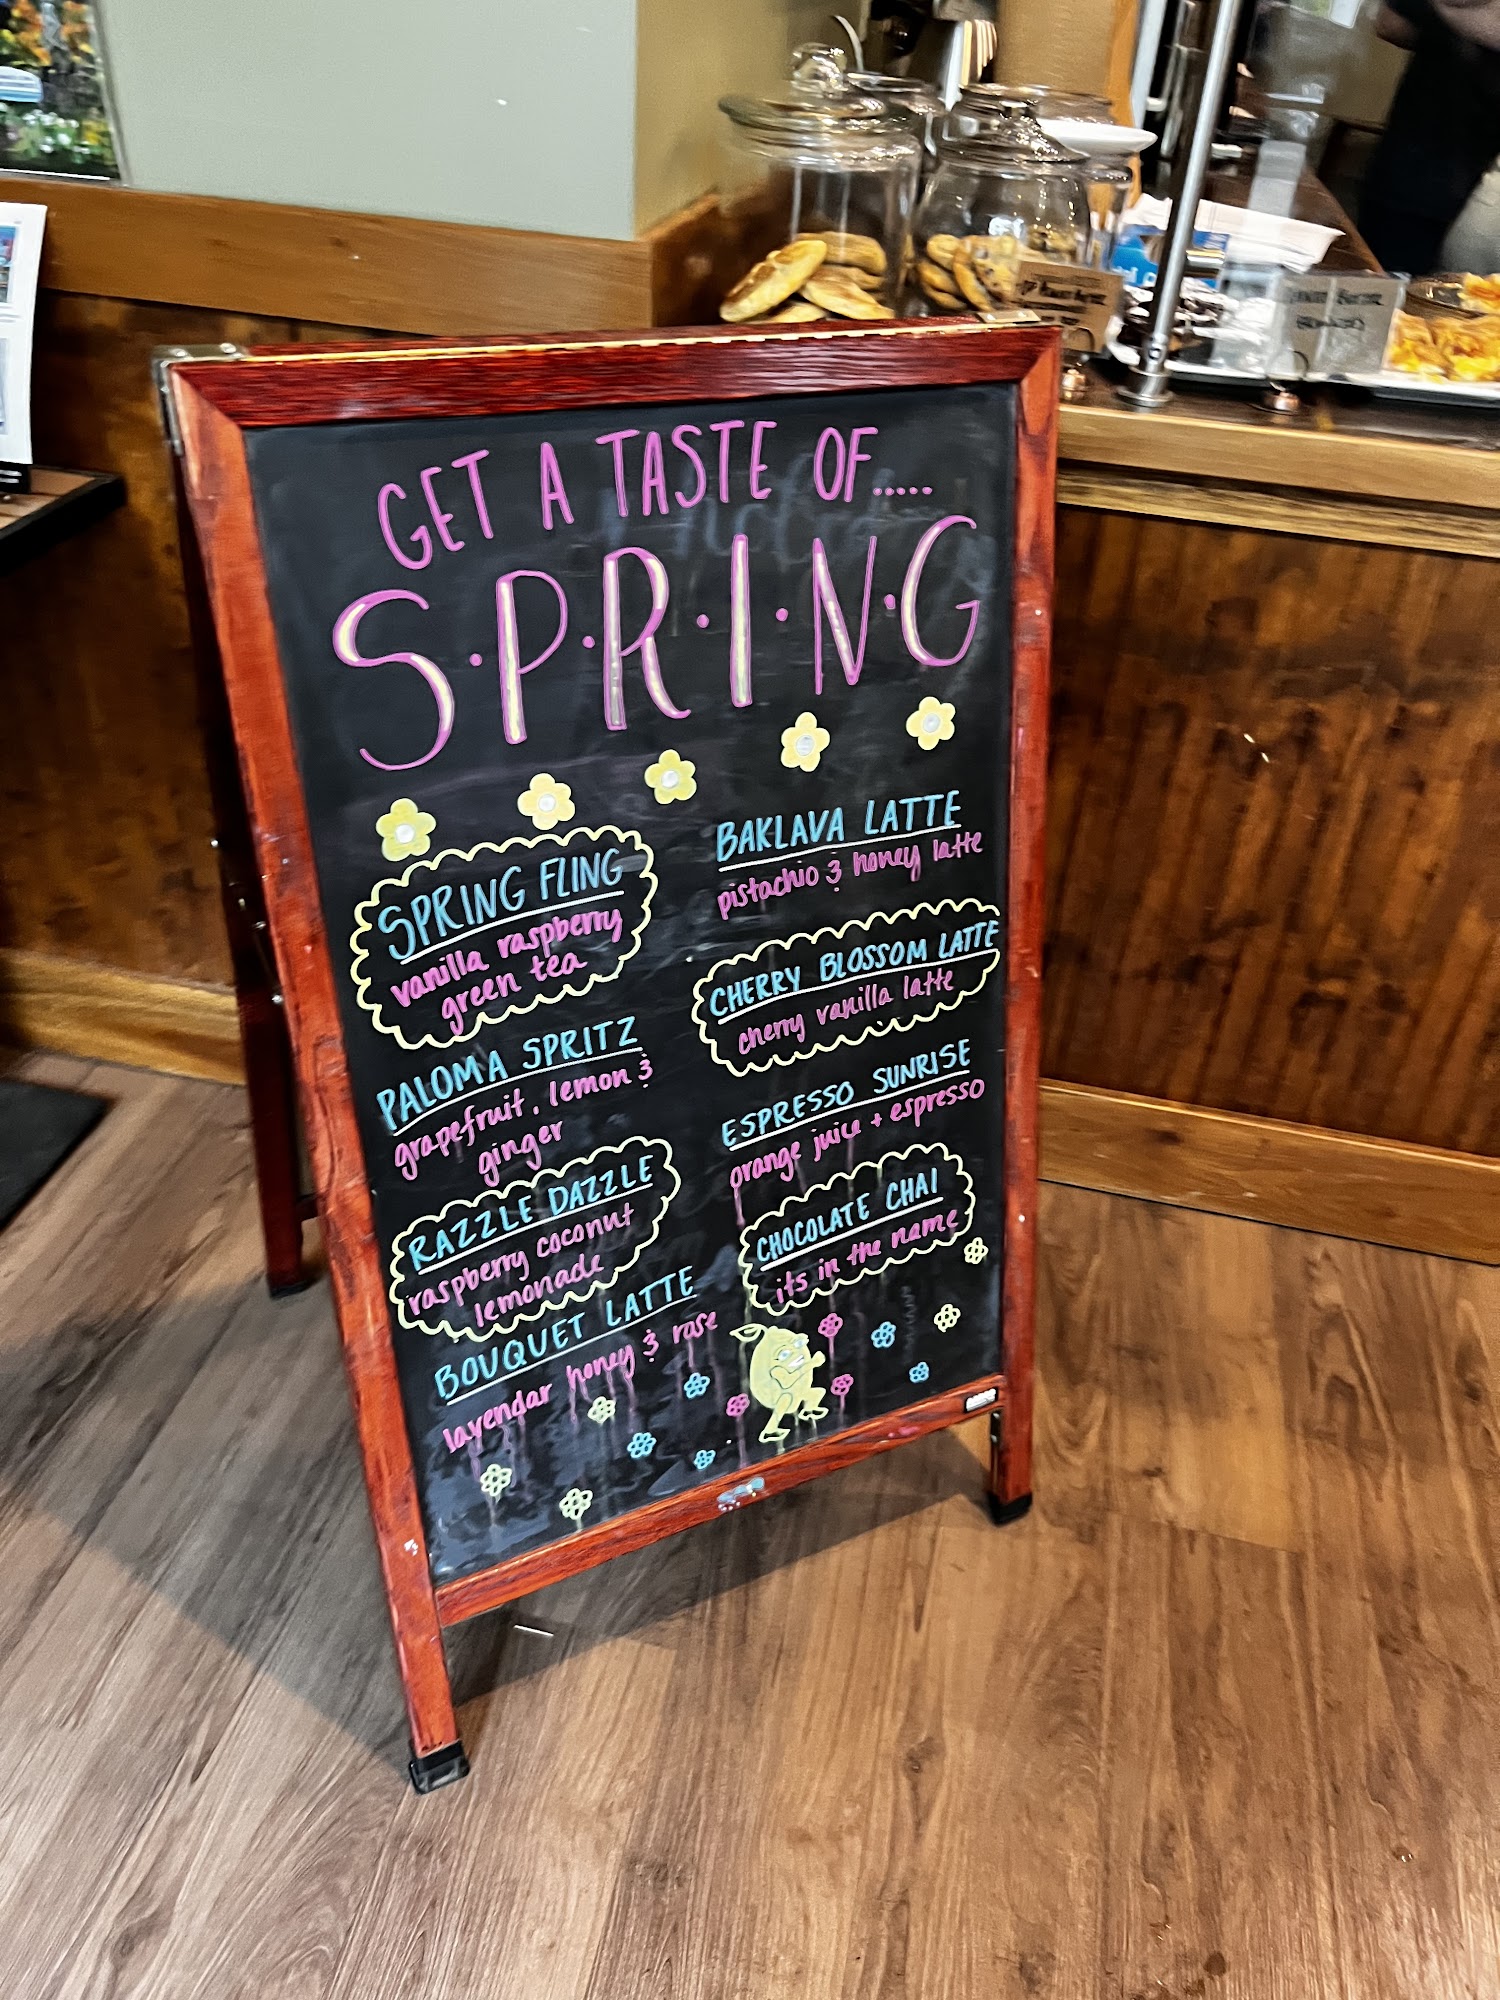 GET A TASTE OF.....
S·P·R·I·N·G
SPRING FLING
vanilla raspberry
green tea
PALOMA SPRITZ
grapefruit, lemon &
ginger
RAZZLE DAZZLE
raspberry coconut
lemonade
BOUQUET LATTE
lavendar honey & rose
BAKLAVA LATTE
pistachio & honey latte
CHERRY BLOSSOM LATTE
cherry vanilla latte
ESPRESSO SUNRISE
orange juice + espresso
CHOCOLATE CHAI
its in the name